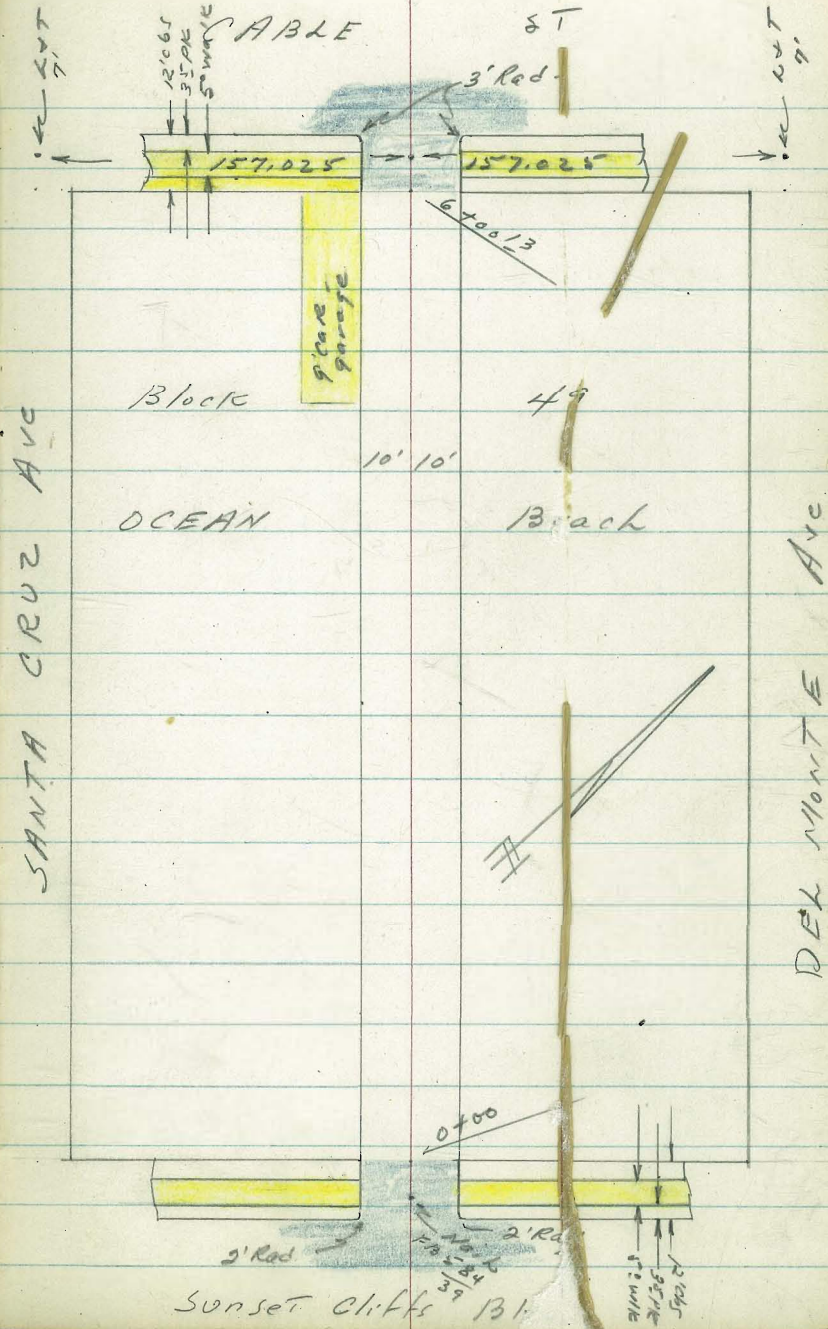 CABLE ST
12' cbs
35 PK
5° Walk
3' Rad
L & T
7'
L & T
7'
157.025 157.025
6+00 13
9' conc
garage
Block 49
10' 10'
OCEAN Beach
SANTA CRUZ Ave
DEL MONTE Ave
0+00
2' Rad
2' Rad
FB 584
/39
12' cbs
35 PK
5° Wlk
Sunset Cliffs Bl